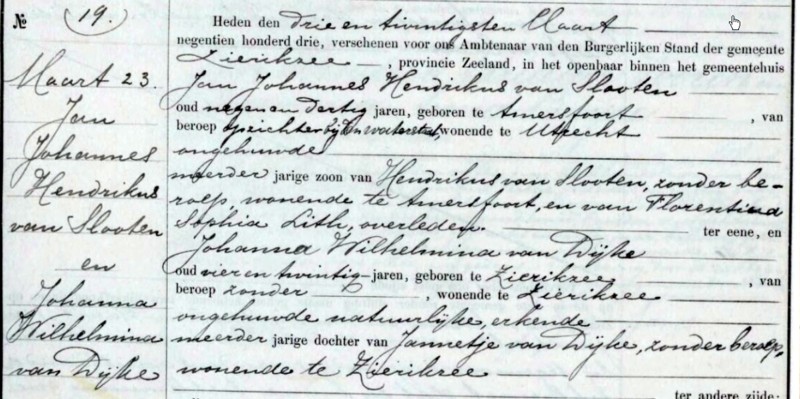 № 19.
Maart 23.
Jan
Johannes
Hendrikus
van Slooten
en
Johanna
Wilhelmina
van Dijke
Heden den drie en twintigsten Maart
negentien honderd drie, verschenen voor ons Ambtenaar van den Burgerlijken Stand der gemeente
Zierikzee, provincie Zeeland, in het openbaar binnen het gemeentehuis
Jan Johannes Hendrikus van Slooten
oud negen en dertig jaren, geboren te Amersfoort, van
beroep opzichter bij den waterstaat, wonende te Utrecht
ongehuwde
meerder jarige zoon van Hendrikus van Slooten, zonder be-
roep, wonende te Amersfoort, en van Florentina
Sophia Lith, overleden. ter eene, en
Johanna Wilhelmina van Dijke
oud vier en twintig jaren, geboren te Zierikzee, van
beroep zonder, wonende te Zierikzee
ongehuwde natuurlijke, erkende
meerder jarige dochter van Jannetje van Dijke, zonder beroep,
wonende te Zierikzee
ter andere zijde;